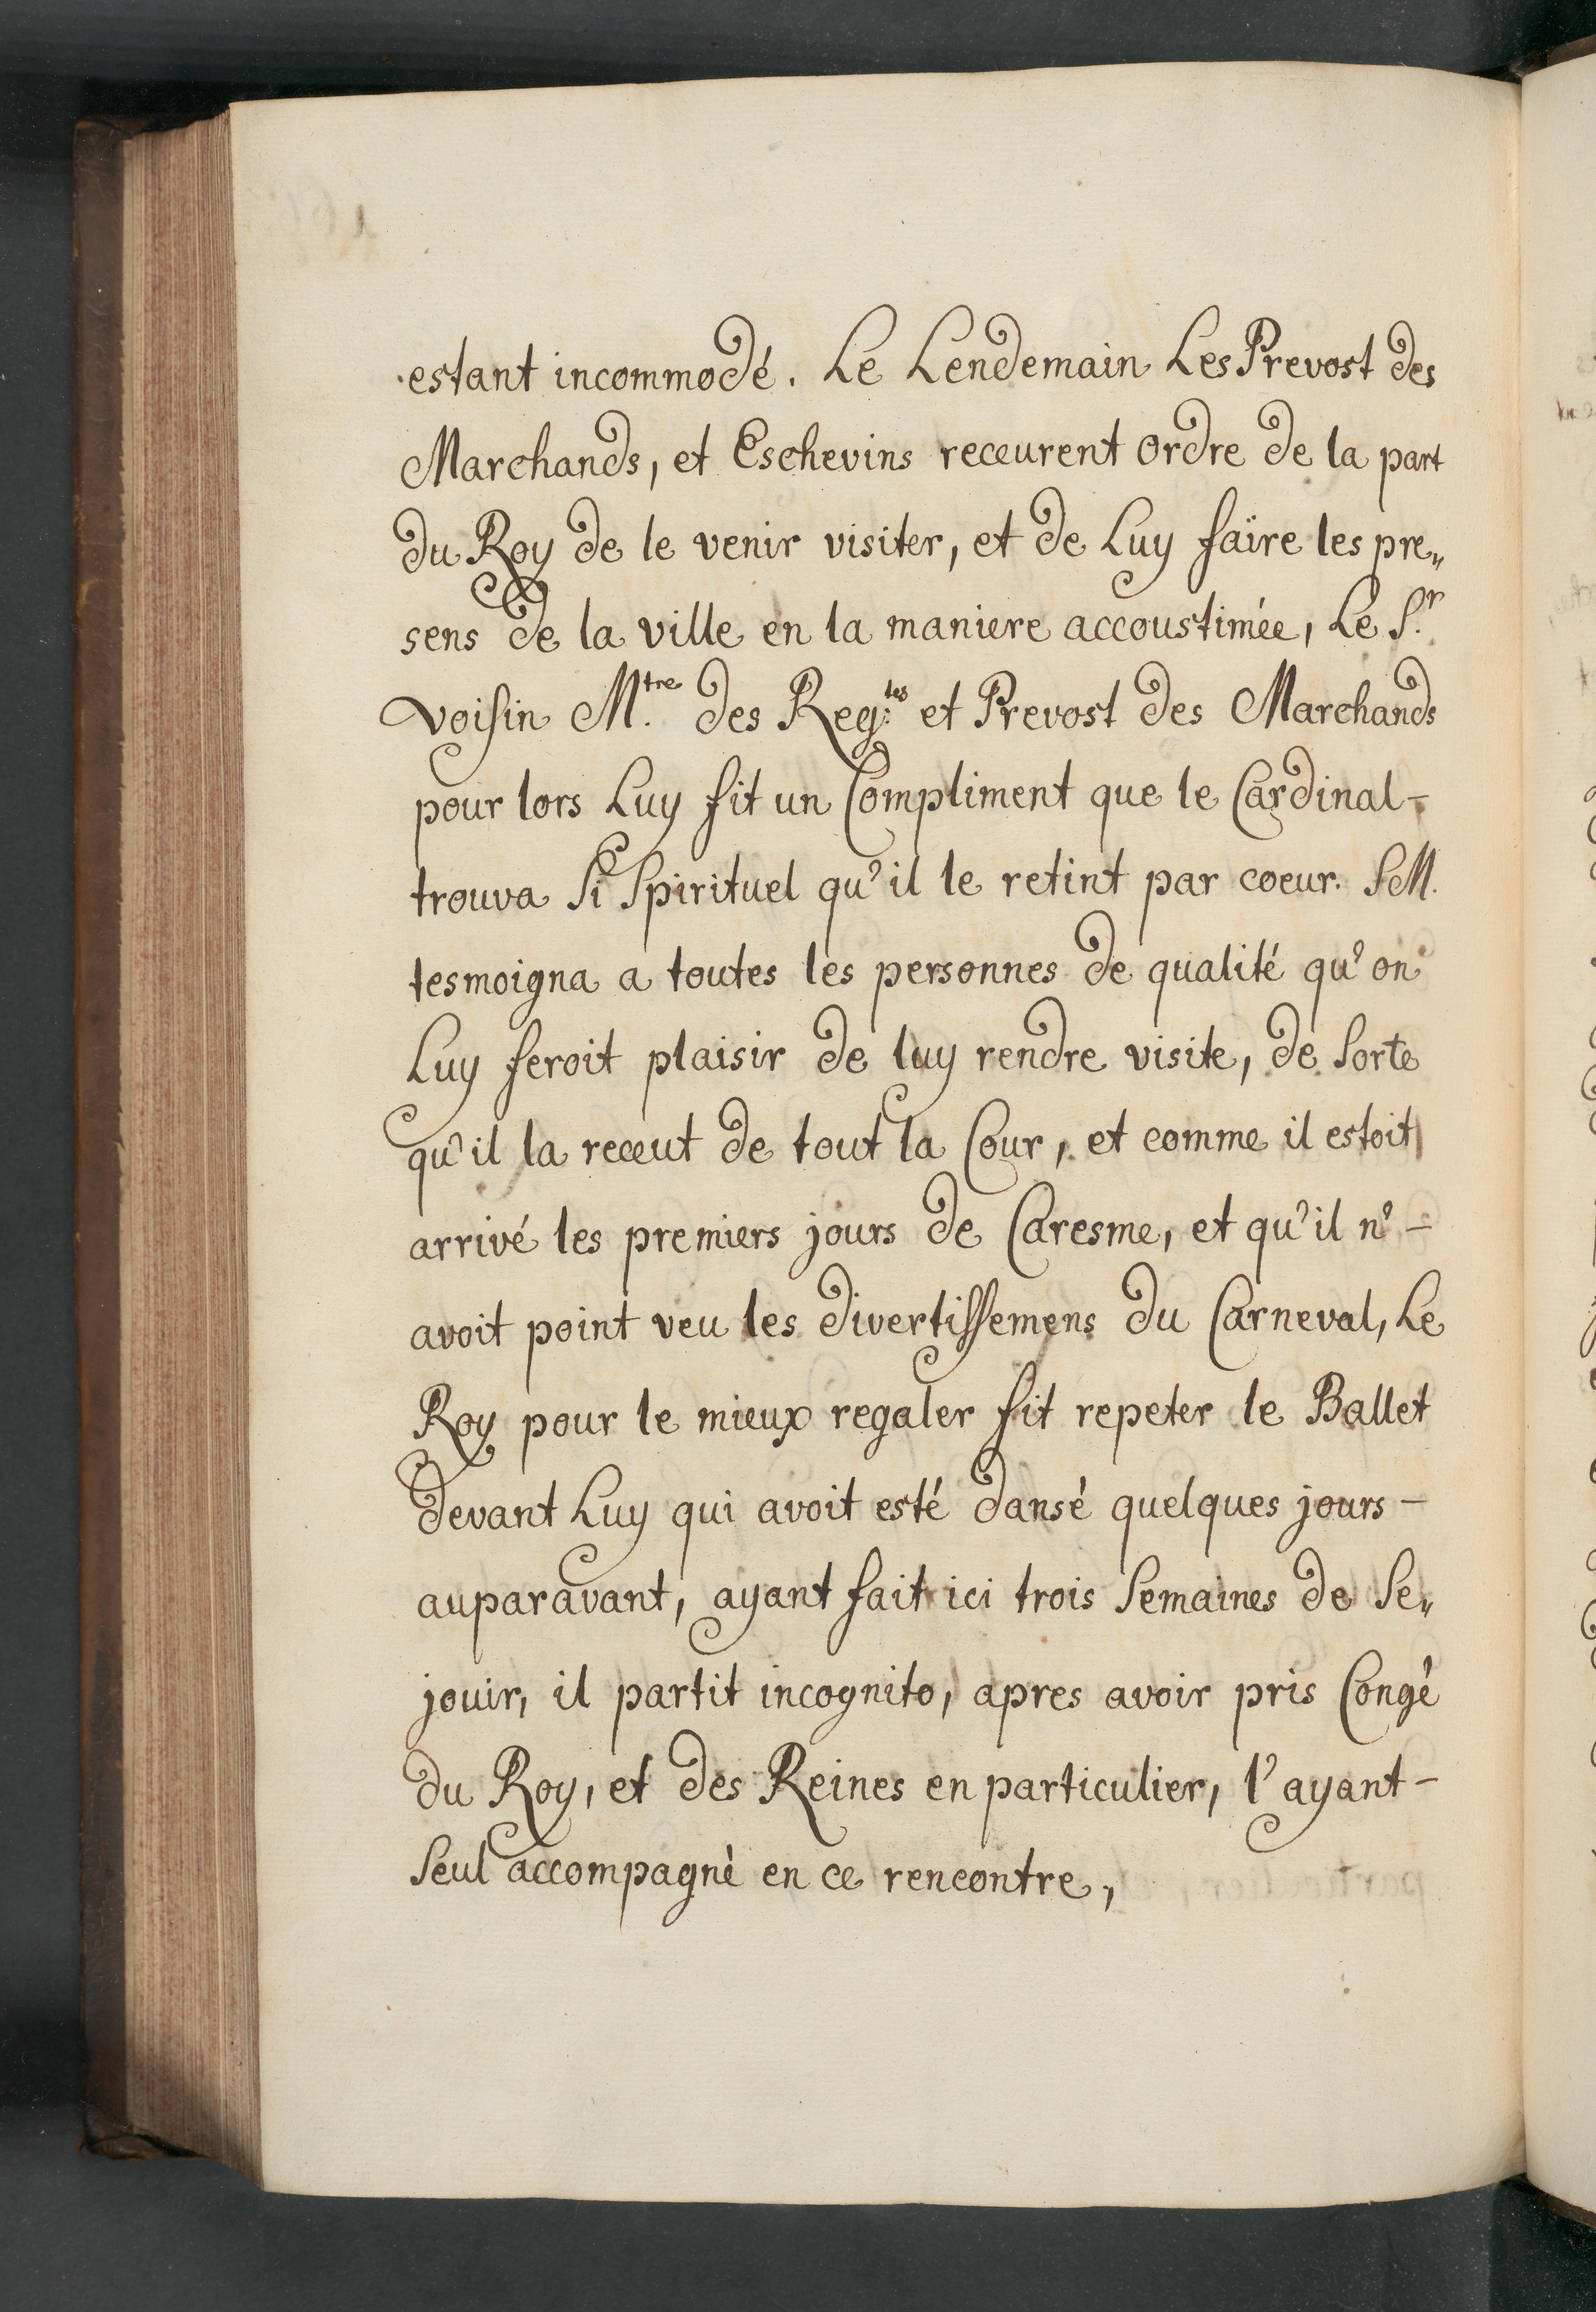 estant incommodé. Le Lendemain Les Prevost des
Marchands, et Eschevins receurent ordre de la part
du Roy de le venir visiter, et de Luy faïre les pre„
sens de la ville en la maniere accoustimée, Le S.r
voisin M.tre des Reg.tes et Prevost des Marchands
pour lors Luy fit un Compliment que le Cardinal-
trouva Si Spirituel qu'il le retint par coeur. SM.
tesmoigna a toutes les personnes de qualité qu'on
Luy feroit plaisir de luy rendre visite, de Sorte
qu'il la receut de tout la Cour, et comme il estoit
arrivé les premiers jours de Caresme, et qu'il n'-
avoit point veu les divertissemens du Carneval, Le
Roy pour le mieux regaler fit repeter le Ballet
devant Luy qui avoit esté dansé quelques jours-
auparavant, ayant fait ici trois Semaines de Se„
jouir, il partit incognito, apres avoir pris Congé
du Roy, et des Reines en particulier, l'ayant-
Seul accompagné en ce rencontre,